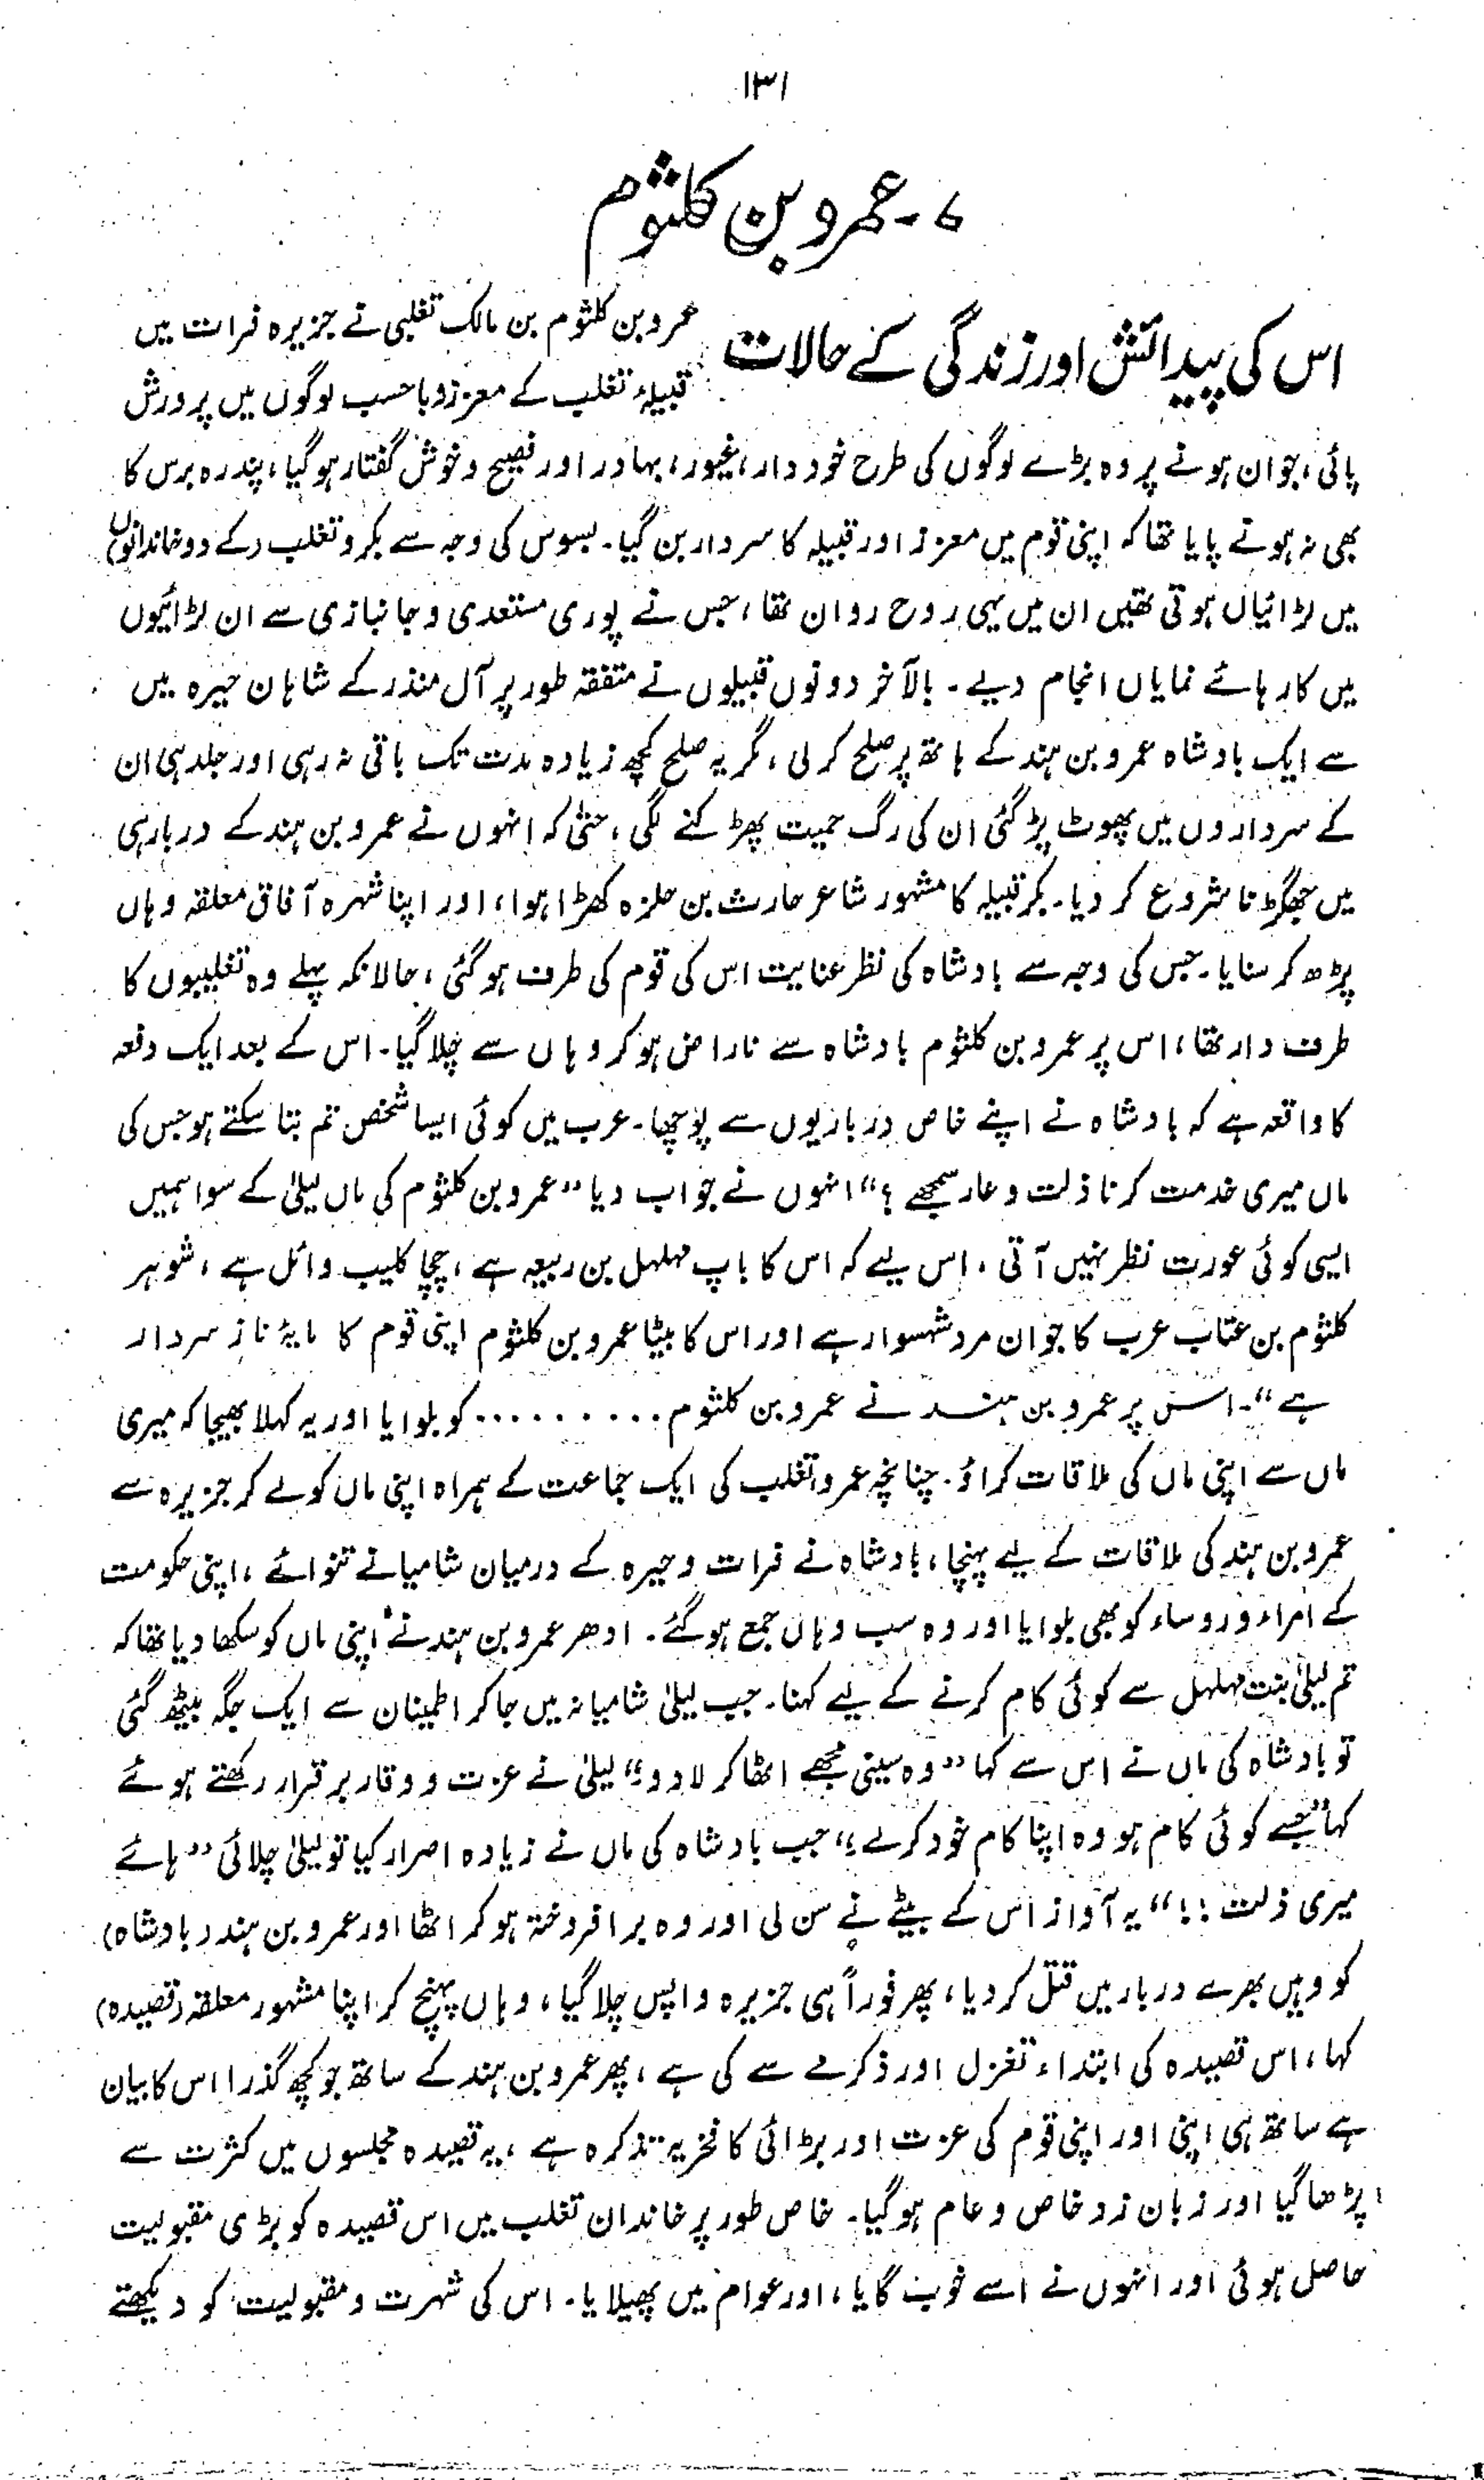 ۱۳۱
۷۔ عمرو بن کلثوم
اس کی پیدائش اور زندگی کے حالات
عمرو بن کلثوم بن مالک تغلبی نے جزیرہ فرات میں
قبیلۂ تغلب کے معزز و با حسب لوگوں میں پرورش
پائی، جوان ہونے پر وہ بڑے لوگوں کی طرح خود دار، غیور، بہادر اور فصیح و خوش گفتار ہو گیا، پندرہ برس کا
بھی نہ ہونے پایا تھا کہ اپنی قوم میں معزز اور قبیلہ کا سردار بن گیا۔ بسوس کی وجہ سے بکر و تغلب (کے دو خاندانوں)
میں لڑائیاں ہوتی تھیں ان میں یہی روح رواں تھا، جس نے پوری مستعدی و جانبازی سے ان لڑائیوں
میں کارہائے نمایاں انجام دیے۔ بالآخر دونوں قبیلوں نے متفقہ طور پر آل منذر کے شاہان حیرہ میں
سے ایک بادشاہ عمرو بن ہند کے ہاتھ پر صلح کر لی، مگر یہ صلح کچھ زیادہ مدت تک باقی نہ رہی اور جلد ہی ان
کے سرداروں میں پھوٹ پڑ گئی ان کی رگ حمیت پھڑکنے لگی، حتیٰ کہ انہوں نے عمرو بن ہند کے دربار ہی
میں جھگڑنا شروع کر دیا۔ بکر قبیلہ کا مشہور شاعر حارث بن حلزہ کھڑا ہوا، اور اپنا شہرہ آفاق معلقہ وہاں
پڑھ کر سنایا۔ جس کی وجہ سے بادشاہ کی نظر عنایت اس کی قوم کی طرف ہو گئی، حالانکہ پہلے وہ تغلبیوں کا
طرف دار تھا، اس پر عمرو بن کلثوم بادشاہ سے ناراض ہو کر وہاں سے چلا گیا۔ اس کے بعد ایک دفعہ
کا واقعہ ہے کہ بادشاہ نے اپنے خاص درباریوں سے پوچھا۔ عرب میں کوئی ایسا شخص تم بتا سکتے ہو جس کی
ماں میری خدمت کرنا ذلت و عار سمجھے؟“ انہوں نے جواب دیا ”عمرو بن کلثوم کی ماں لیلیٰ کے سوا ہمیں
ایسی کوئی عورت نظر نہیں آتی، اس لیے کہ اس کا باپ مہلہل بن ربیعہ ہے، چچا کلیب وائل ہے، شوہر
کلثوم بن عتاب عرب کا جوان مرد شہسوار ہے اور اس کا بیٹا عمرو بن کلثوم اپنی قوم کا مایۂ ناز سردار
ہے“۔ اس پر عمرو بن ہند نے عمرو بن کلثوم .......... کو بلوایا اور یہ کہلا بھیجا کہ میری
ماں سے اپنی ماں کی ملاقات کراؤ۔ چنانچہ عمرو تغلب کی ایک جماعت کے ہمراہ اپنی ماں کو لے کر جزیرہ سے
عمرو بن ہند کی ملاقات کے لیے پہنچا، بادشاہ نے فرات و حیرہ کے درمیان شامیانے تنوائے، اپنی حکومت
کے امراء و روساء کو بھی بلوایا اور وہ سب وہاں جمع ہو گئے۔ ادھر عمرو بن ہند نے اپنی ماں کو سکھا دیا تھا کہ
تم لیلیٰ بنت مہلہل سے کوئی کام کرنے کے لیے کہنا۔ جب لیلیٰ شامیانہ میں جا کر اطمینان سے ایک جگہ بیٹھ گئی
تو بادشاہ کی ماں نے اس سے کہا ”وہ سینی مجھے اٹھا کر لا دو“ لیلیٰ نے عزت و وقار برقرار رکھتے ہوئے
کہا ”جسے کوئی کام ہو وہ اپنا کام خود کرے“ جب بادشاہ کی ماں نے زیادہ اصرار کیا تو لیلیٰ چلائی ”ہائے
میری ذلت!!“ یہ آواز اس کے بیٹے نے سن لی اور وہ برافروختہ ہو کر اٹھا اور عمرو بن ہند (بادشاہ)
کو وہیں بھرے دربار میں قتل کر دیا، پھر فوراً ہی جزیرہ واپس چلا گیا، وہاں پہنچ کر اپنا مشہور معلقہ (قصیدہ)
کہا، اس قصیدہ کی ابتداء تغزل اور ذکر مے سے کی ہے، پھر عمرو بن ہند کے ساتھ جو کچھ گذرا اس کا بیان
ہے ساتھ ہی اپنی اور اپنی قوم کی عزت اور بڑائی کا فخریہ تذکرہ ہے، یہ قصیدہ مجلسوں میں کثرت سے
پڑھا گیا اور زبان زد خاص و عام ہو گیا۔ خاص طور پر خاندان تغلب میں اس قصیدہ کو بڑی مقبولیت
حاصل ہوئی اور انہوں نے اسے خوب گایا، اور عوام میں پھیلایا۔ اس کی شہرت و مقبولیت کو دیکھتے